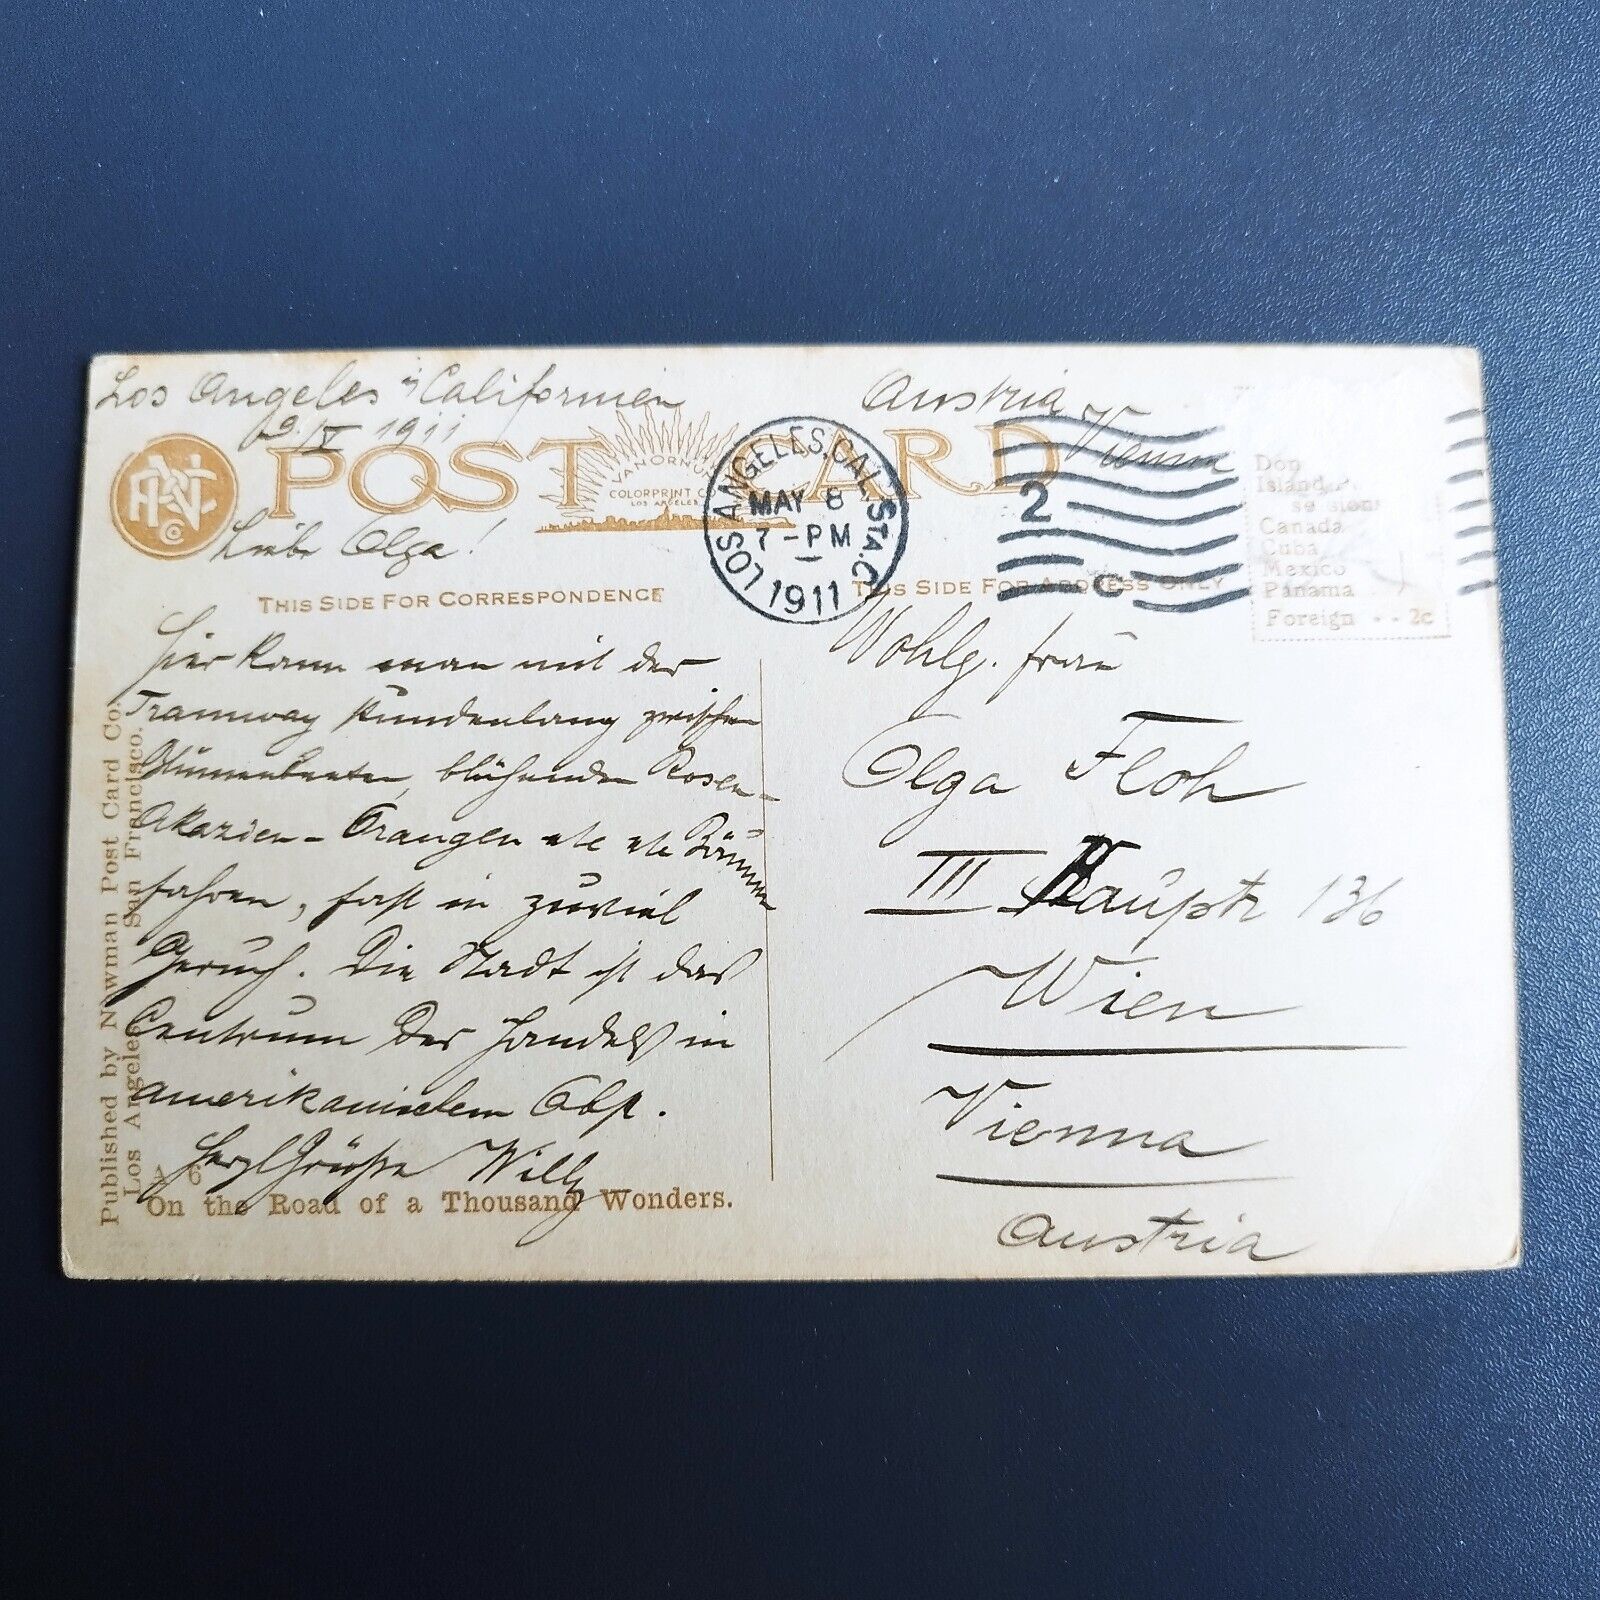 Los Angeles in Californien
9. V 1911
POST CARD
VAN ORNUM
COLORPRINT CO
LOS ANGELES
Liebe Olga!
THIS SIDE FOR CORRESPONDENCE
Hier kann man mit der
Tramway stundenlang zwischen
Blumenbeeten, blühenden Rosen-
Akazien - Orangen etc etc Bäumen
fahren, fast in zuviel
Geruch. Die Stadt ist das
Centrum des Handels in
amerikanischem Obst.
Herzl Grüße Willy
A 6
On the Road of a Thousand Wonders.
Published by Newman Post Card Co.
Los Angeles San Francisco.
LOS ANGELES, CAL. STA. C
MAY 8
7-PM
1911
2
Austria
Vienna
THIS SIDE FOR ADDRESS ONLY
Island
Canada
Cuba
Mexico
Panama
Foreign - - 2c
Wohlg. Frau
Olga Floh
III Hauptstr 136
Wien
Vienna
Austria